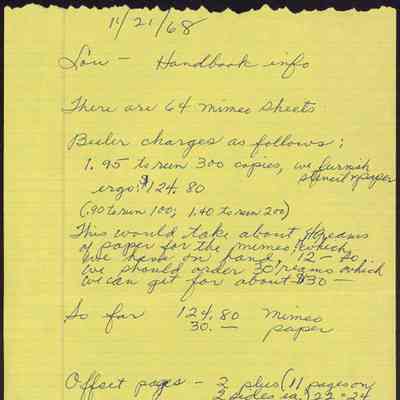 11/21/68
Lou - Handbook info
There are 64 mimeo sheets
Beeler charges as follows:
1.95 to run 300 copies, we furnish
stencil & paper
ergo: $124.80
(.90 to run 100; 1.40 to run 200)
This would take about reams
of paper for the mimeo, which
we have on hand, 12 - So
we should order 30 reams which
we can get for about $30 -
So far 124.80 mimeo
30. - paper
Offset pages - 2 plus (11 pages on
2 sides ea.) 22 = 24